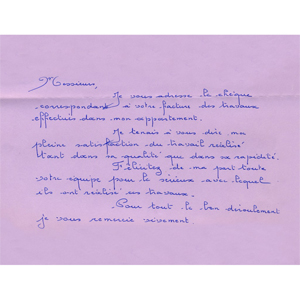 Messieurs,
Je vous adresse le chèque
correspondant à votre facture des travaux
effectués dans mon appartement.
Je tenais à vous dire ma
pleine satisfaction du travail réalisé
tant dans sa qualité que dans sa rapidité.
Félicitez de ma part toute
votre équipe pour le sérieux avec lequel
ils ont réalisé ces travaux.
Pour tout le bon déroulement
je vous remercie vivement.